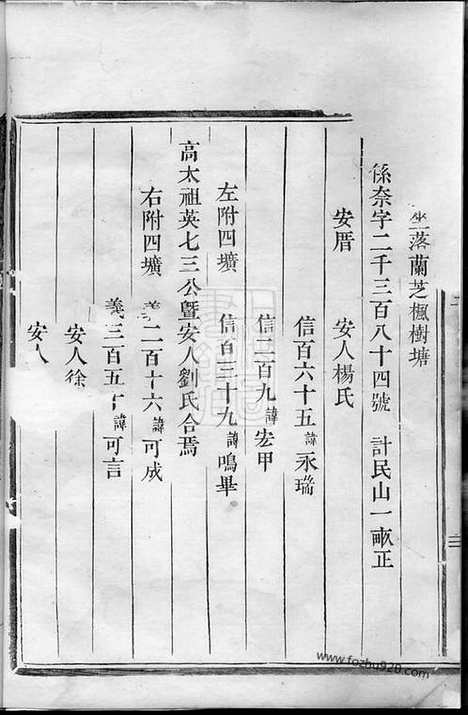 坐落蘭芝楓樹塘
係奈字二千三百八十四號 計民山一畝正
安厝 安人楊氏
信百六十五諱永瑞
信二百九諱宏甲
左附四壙 信百三十九諱鳴畢
高太祖英七三公暨安人劉氏合焉
右附四壙 義二百十六諱可成
義三百五十諱可言
安人徐
安人
www.fozhu920.com